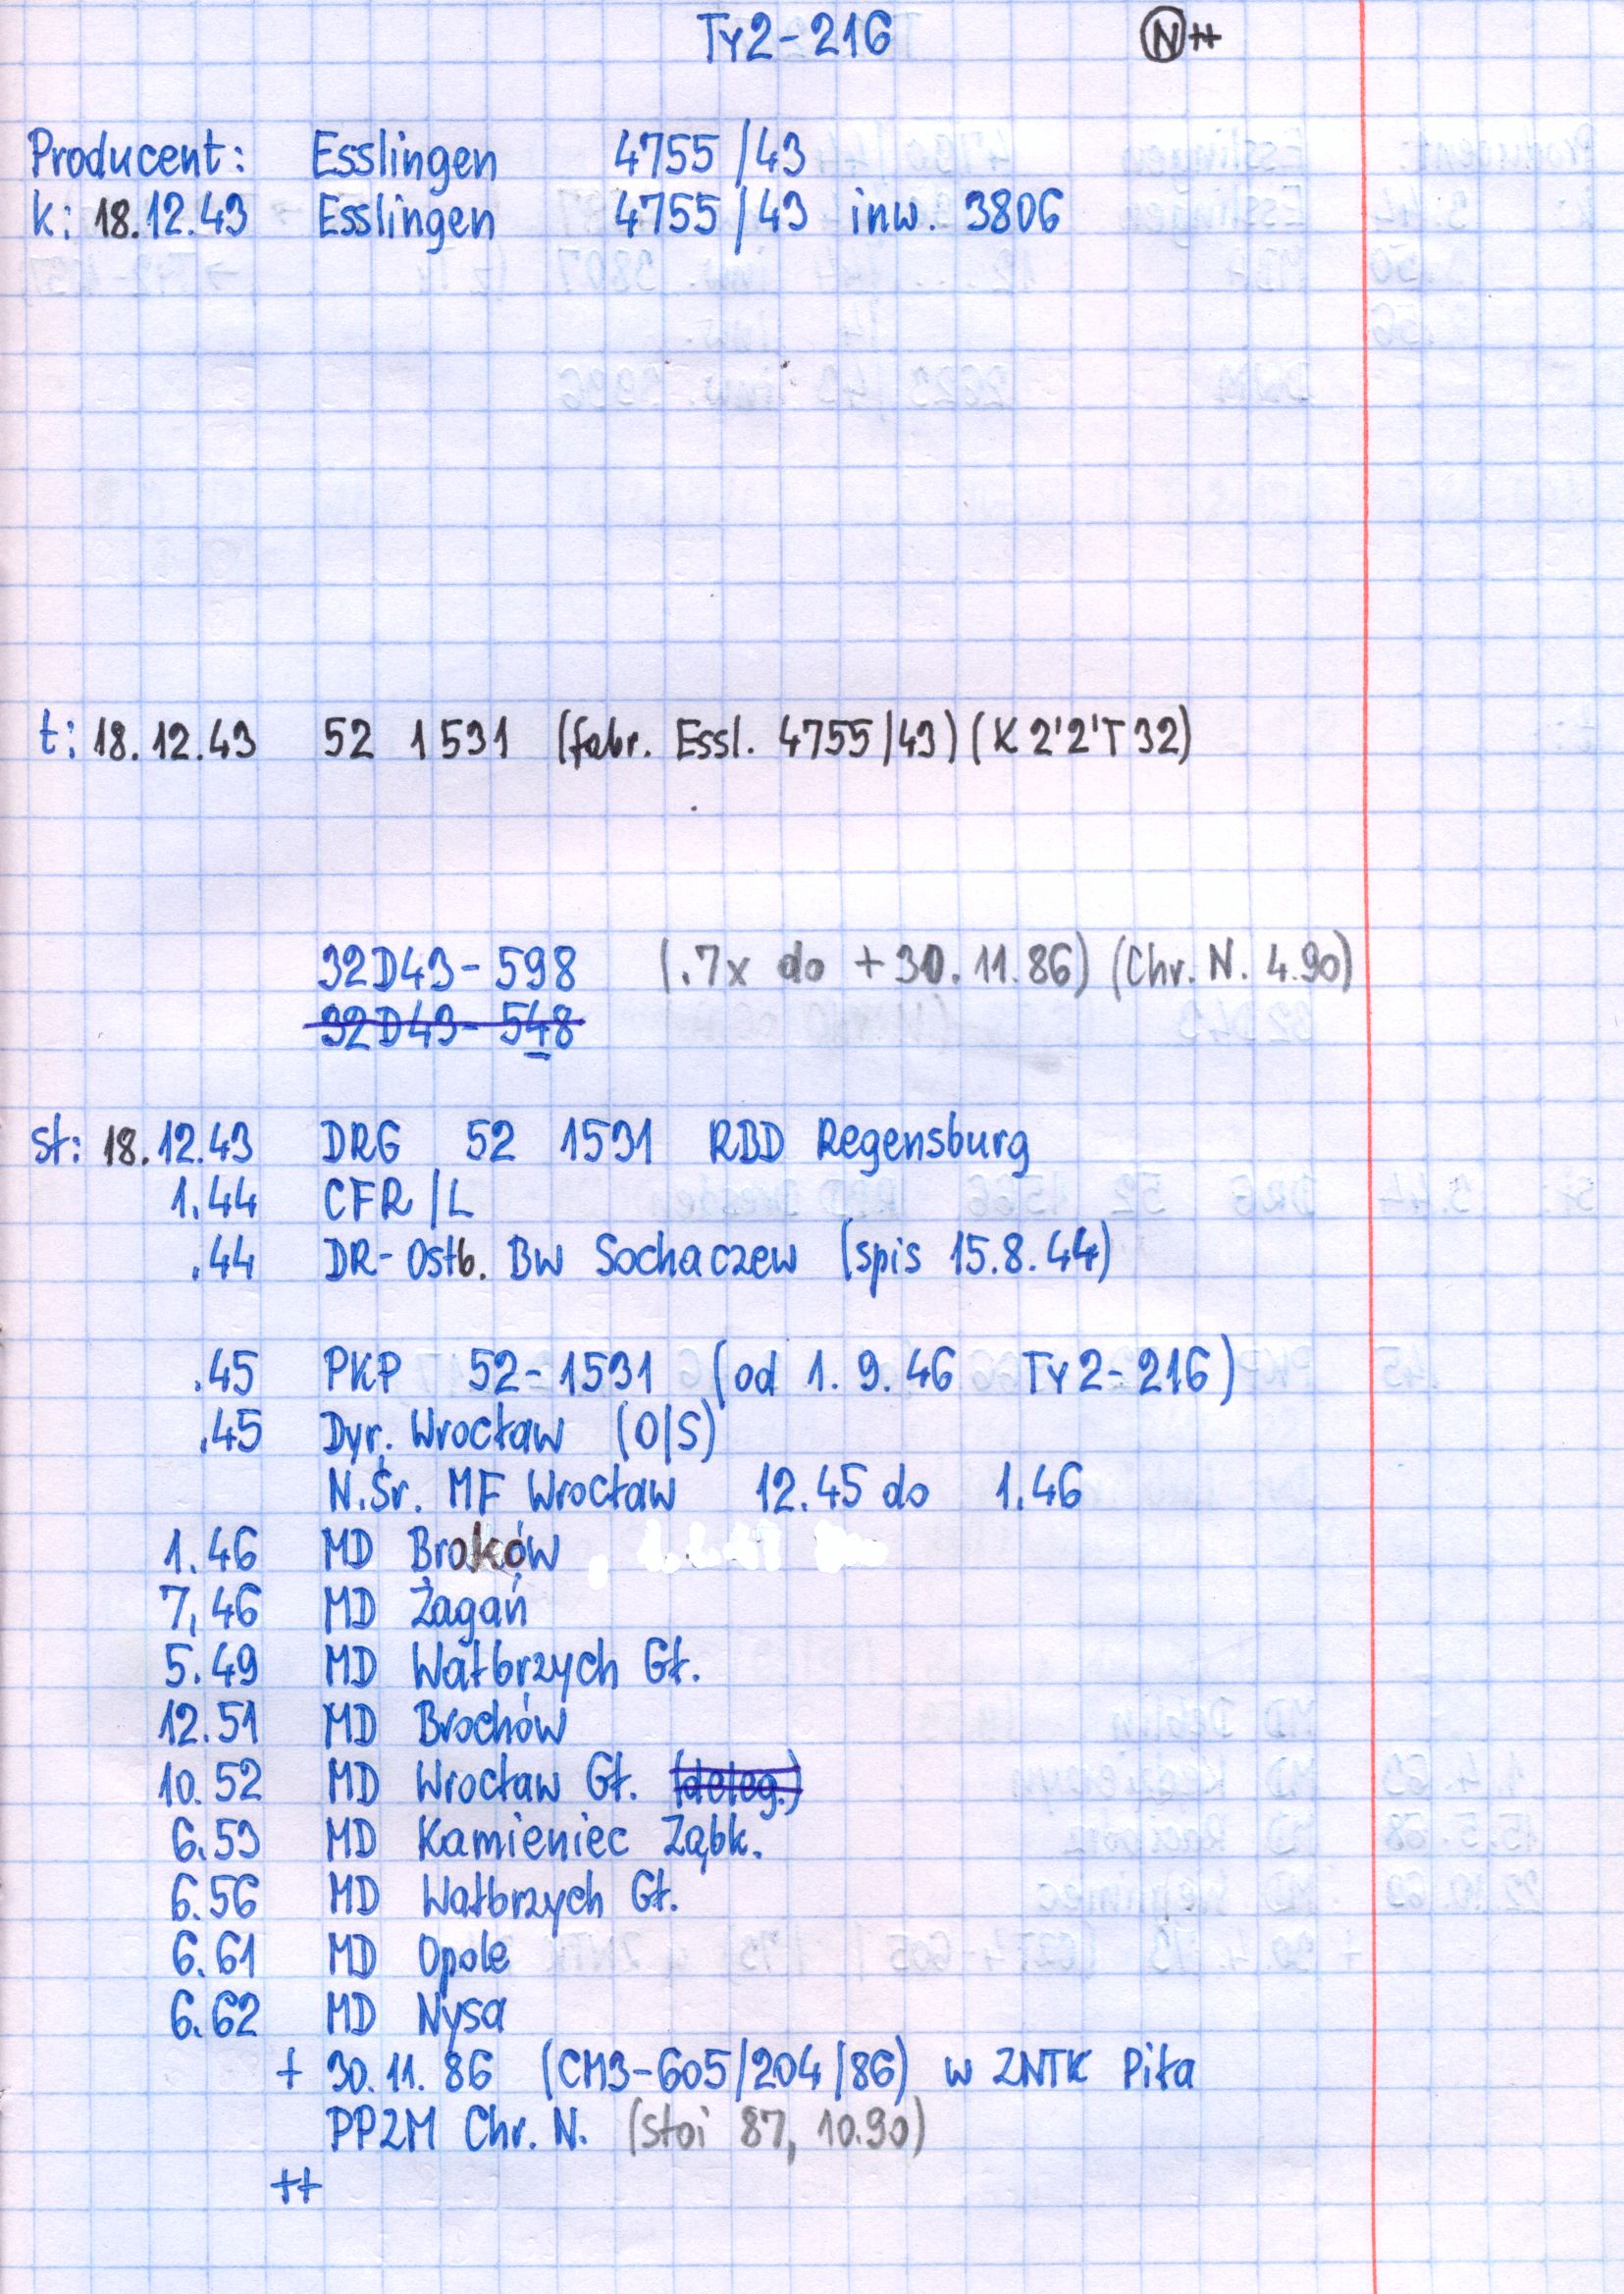 Ty2-216 N ++
Producent: Esslingen 4755/43
k: 18.12.43 Esslingen 4755/43 inw. 3806
t: 18.12.43 52 1531 (fabr. Essl. 4755/43) (K 2'2'T 32)
32D43-598 (.7x do + 30.11.86) (Chr. N. 4.90)
32D43-548
st: 18.12.43 DRG 52 1531 RBD Regensburg
1.44 CFR/L
.44 DR-Ostb. Bw Sochaczew (spis 15.8.44)
.45 PKP 52-1531 (od 1.9.46 Ty2-216)
.45 Dyr. Wrocław (O/S)
N.Śr. MF Wrocław 12.45 do 1.46
1.46 MD Broków
7.46 MD Żagań
5.49 MD Wałbrzych Gł.
12.51 MD Brochów
10.52 MD Wrocław Gł. (deleg.)
6.53 MD Kamieniec Ząbk.
6.56 MD Wałbrzych Gł.
6.61 MD Opole
6.62 MD Nysa
+ 30.11.86 (CM3-605/204/86) w ZNTK Piła
PPZM Chr. N. (stoi 87, 10.90)
++